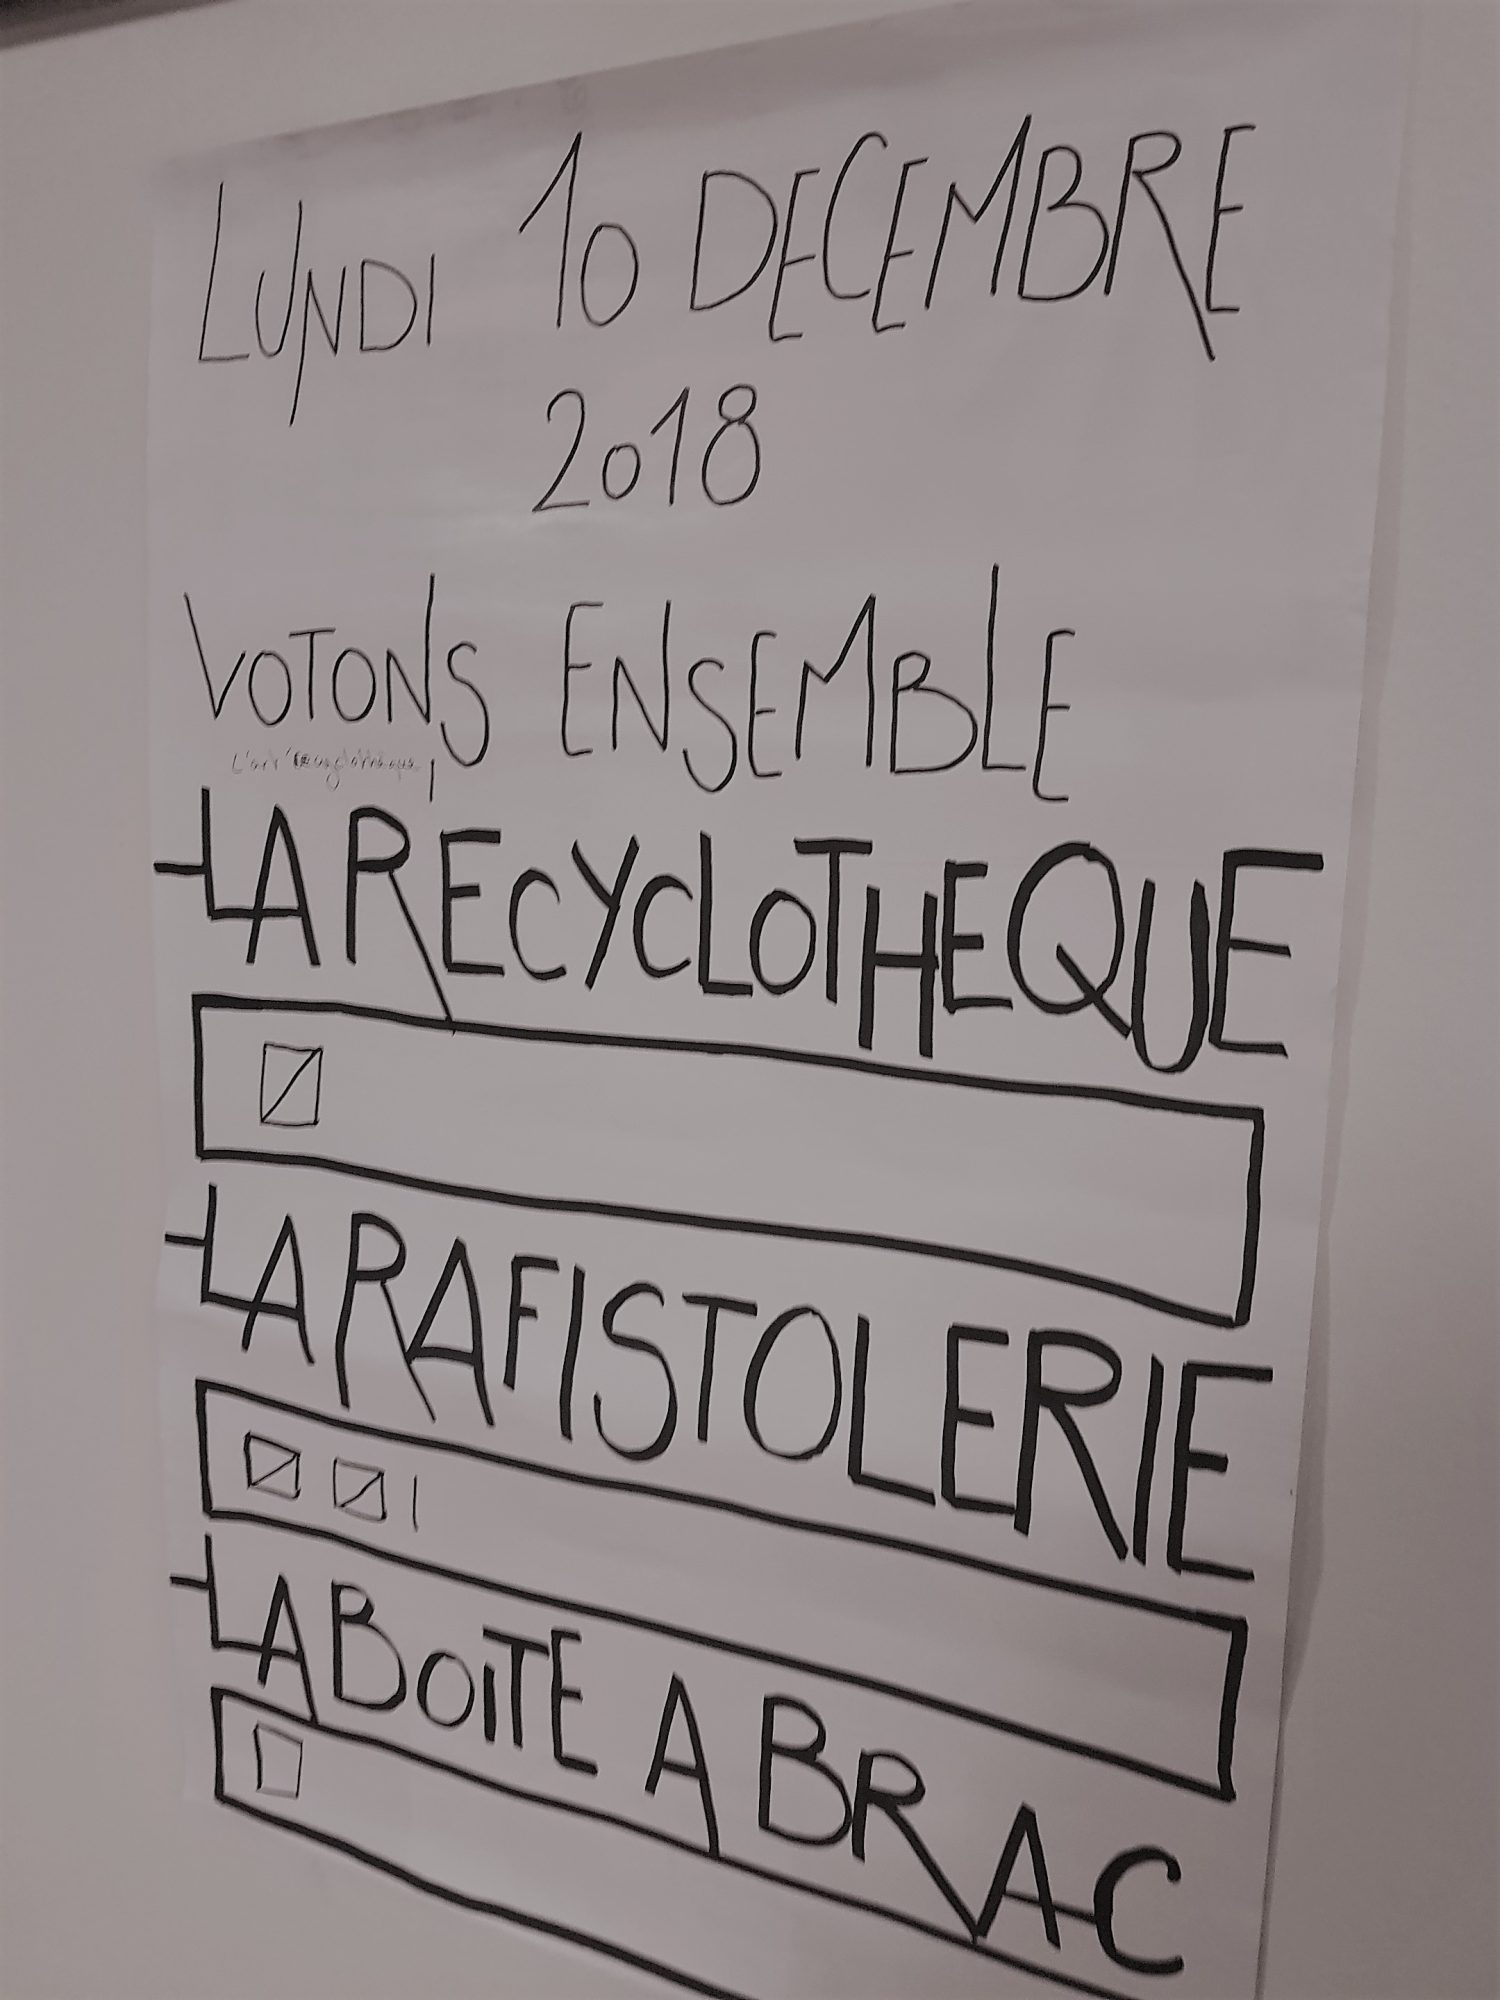 LUNDI 10 DECEMBRE
2018
VOTONS ENSEMBLE
L'art'recyclothèque
-LA RECYCLOTHEQUE
-LA RAFISTOLERIE
-LA BOiTE A BRAC